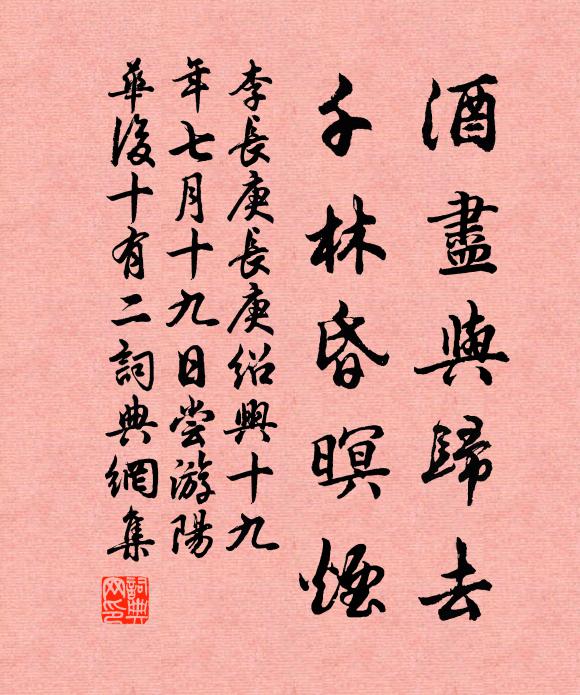 酒盡與歸去
千林昏暝煙
李長庚長庚紹興十九
年七月十九日嘗游陽
華後十有二詞典網集
詞典网印